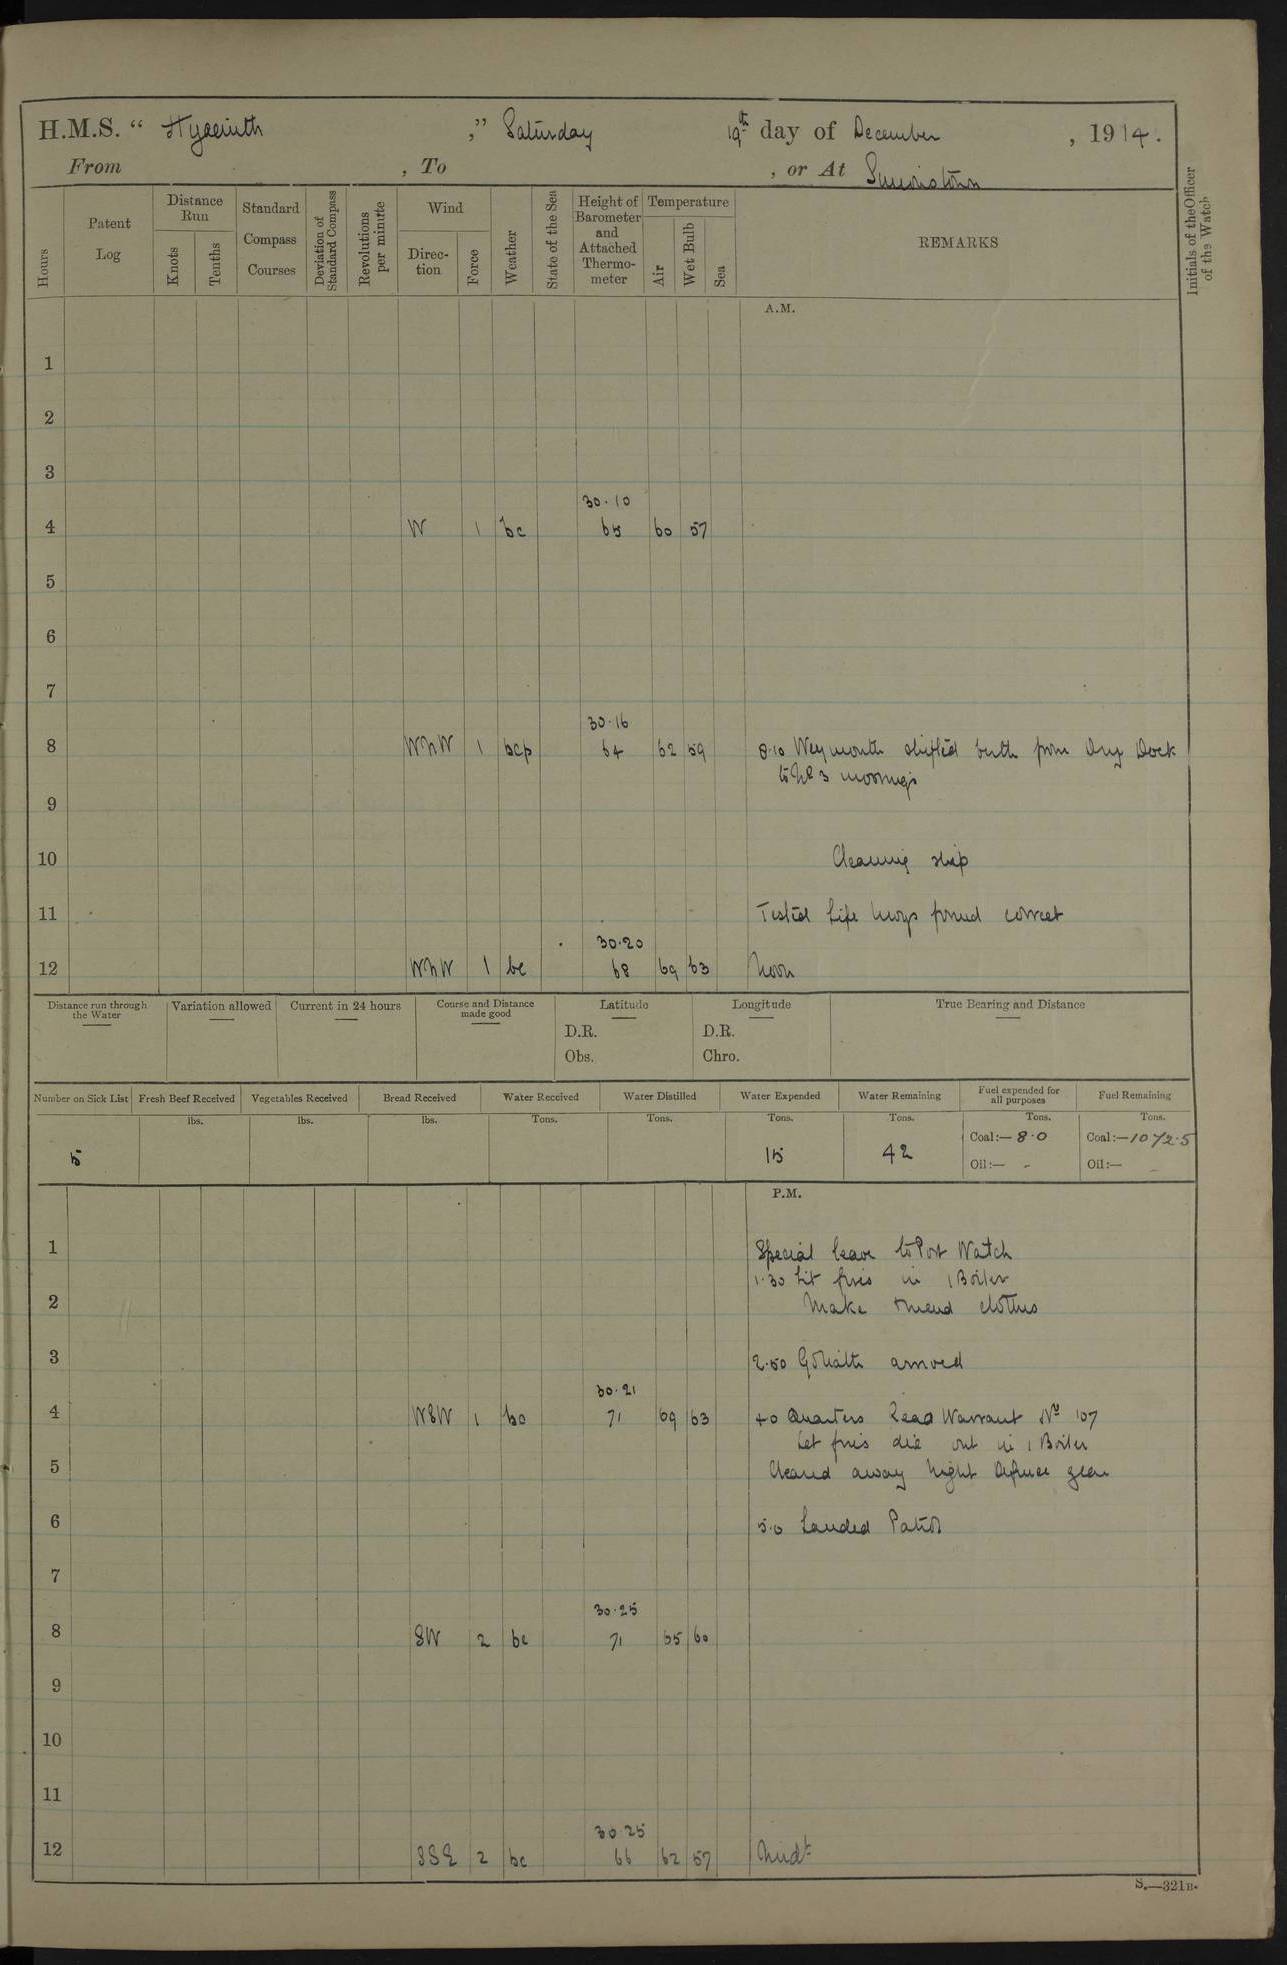 H.M.S. “ Hyacinth ,” Saturday 19th day of December , 1914.
From , To , or At Simonstown
Hours
Patent Log
Distance Run
Knots
Tenths
Standard Compass Courses
Deviation of Standard Compass
Revolutions per minute
Wind
Direc-tion
Force
Weather
State of the Sea
Height of Barometer and Attached Thermo-meter
Temperature
Air
Wet Bulb
Sea
REMARKS
Initials of the Officer of the Watch
A.M.
1
2
3
30.10
4 W 1 bc 65 60 57
5
6
7
30.16
8 WNW 1 bcp 64 62 59 8.10 Weymouth shifted berth from Dry Dock
to No 3 moorings
9
10 Cleaning ship
11 Tested Life buoys found correct
30.20
12 WNW 1 bc 68 69 63 Noon
Distance run through the Water
Variation allowed
Current in 24 hours
Course and Distance made good
Latitude
D.R.
Obs.
Longitude
D.R.
Chro.
True Bearing and Distance
Number on Sick List Fresh Beef Received Vegetables Received Bread Received Water Received Water Distilled Water Expended Water Remaining Fuel expended for all purposes Fuel Remaining
lbs. lbs. lbs. Tons. Tons. Tons. Tons. Tons. Tons.
5 15 42 Coal:— 8.0 Coal:— 1072.5
Oil:— - Oil:— -
P.M.
1 Special leave to Port Watch
1.30 Lit fires in 1 Boiler
2 Make & mend clothes
3 2.50 Goliath arrived
30.21
4 WSW 1 bc 71 69 63 4.0 Quarters Read Warrant No 107
Let fires die out in 1 Boiler
5 Cleared away Night Defence gear
6 5.0 Landed Patrol
7
30.25
8 SW 2 bc 71 65 60
9
10
11
30.25
12 SSE 2 bc 66 62 57 Midt
S.—321B.